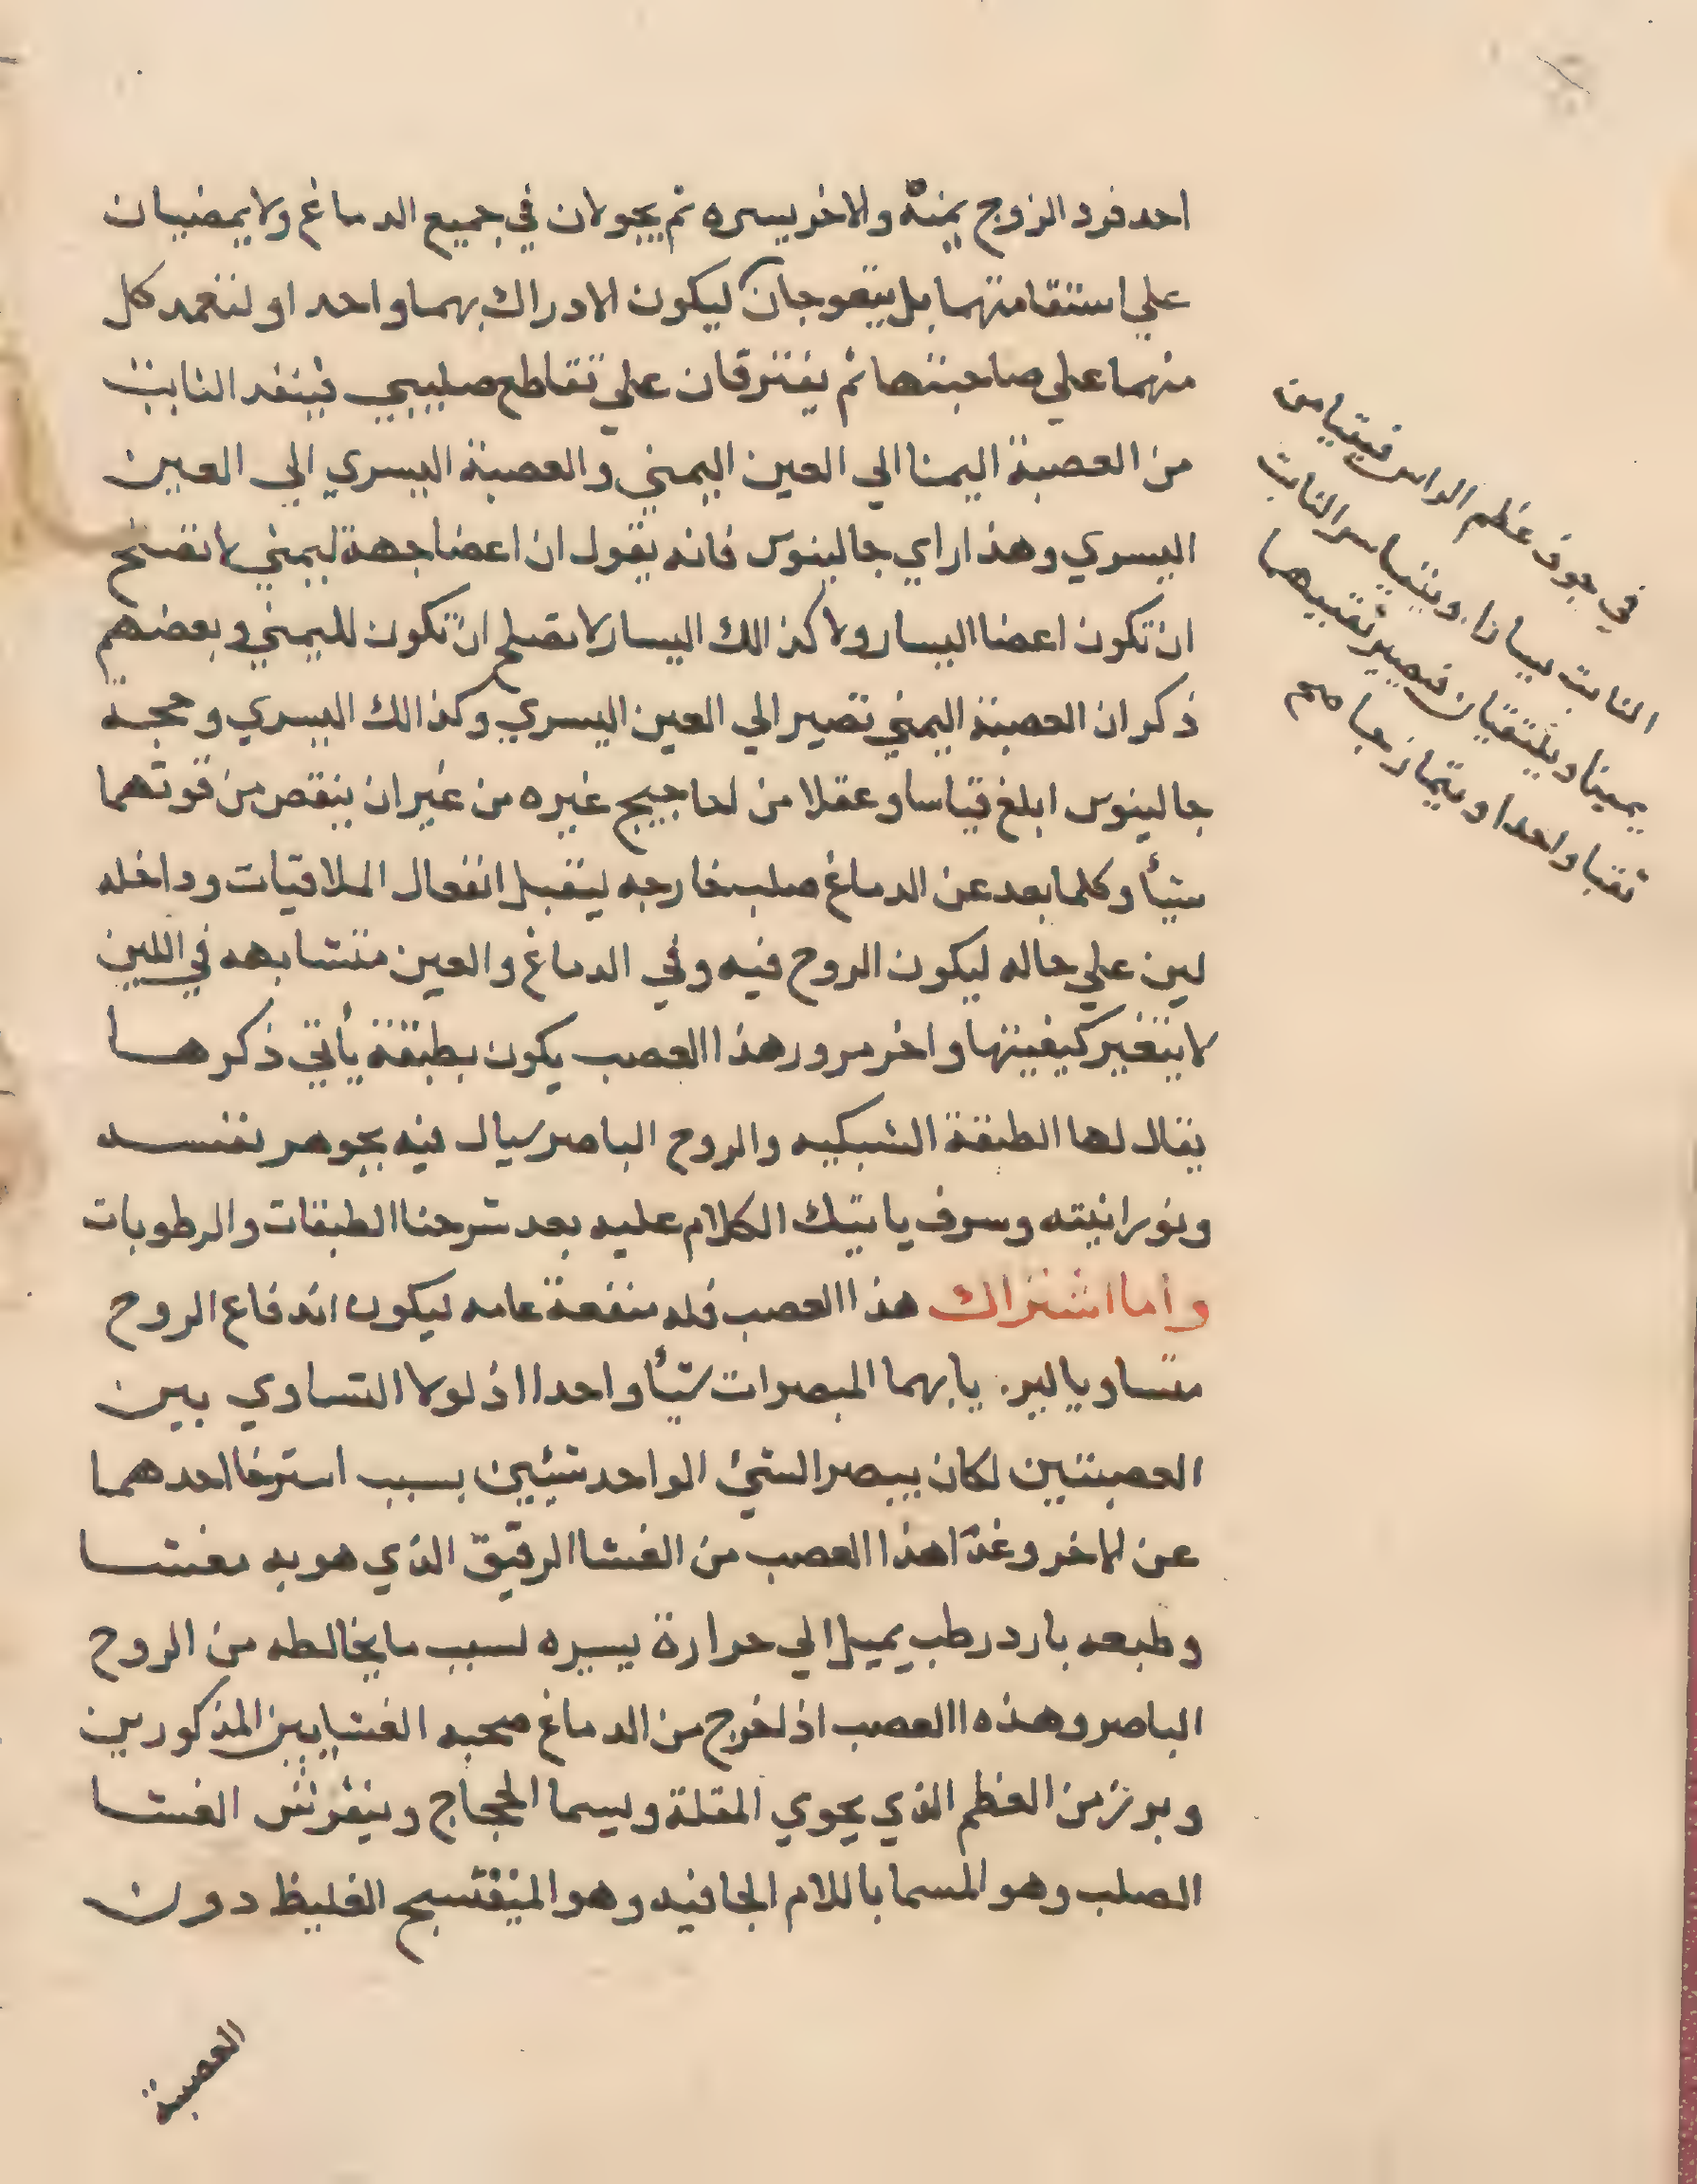 احد فرد الزوج يمنة والاخر يسره ثم يجولان في جميع الدماغ ولا يمضيان
علي استقامتهما بل يتعوجان ليكون الادراك بهما واحد او لتعمد كل
منهما علي صاحبتها ثم يفترقان علي تقاطع صليبي فينفد النابت
من العصبة اليمنا الي العين اليمني والعصبة اليسري الي العين
اليسري وهذا راي جالينوس فانه يقول ان اعضا جهة ليمني لا تصلح
ان تكون اعضا اليسار ولا كذالك اليسار لا تصلح ان تكون لليمني وبعضهم
ذكر ان العصبة اليمني تصير الي العين اليسري وكذالك اليسري وحجة
جالينوس ابلغ قياسا وعقلا من احاجيج غيره من غير ان ينقص من قوتهما
شيأ وكلما بعد عن الدماغ صلب خارجه ليقبل انفعال الملاقيات وداخله
لين علي حاله ليكون الروح فيه وفي الدماغ والعين متشابهه في اللين
لا يتغير كيفيتها واخر مرور هذا العصب يكون بطبقة يأتي ذكرها
يقال لها الطبقة الشبكيه والروح الباصر سيال فيه بجوهر نفسه
ونورانيته وسوف ياتيك الكلام عليه بعد شرحنا الطبقات والرطوبات
وأما اشتراك هذا العصب فله منفعة عامه ليكون اندفاع الروح
متساويا لير يا بهما المبصرات شيأ واحدا اذ لولا التساوي بين
العصبتين لكان يبصر الشئ الواحد شيئين بسبب استرخا احدهما
عن الاخر وغذا هذا العصب من الغشا الرقيق الذي هو به مغشا
وطبعه بارد رطب يميل الي حرارة يسيره لسبب ما يخالطه من الروح
الباصر وهذه العصب اذا خرج من الدماغ صحبه الغشايين المذكورين
وبرز من العظم الذي يحوي المقلة ويسما الحجاج وينفرش الغشا
الصلب وهو المسما باللام الجافيه وهو المنتسج الغليظ دون
العصبة
في جوف عظم الراس فيتيامن
النابت يسارا ويتياسر النابت
يمينا ويلتقيان فيصير ثقبيهما
ثقبا واحدا ويتمازجا صح